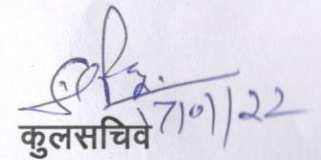 7/01/22
कुलसचिवे